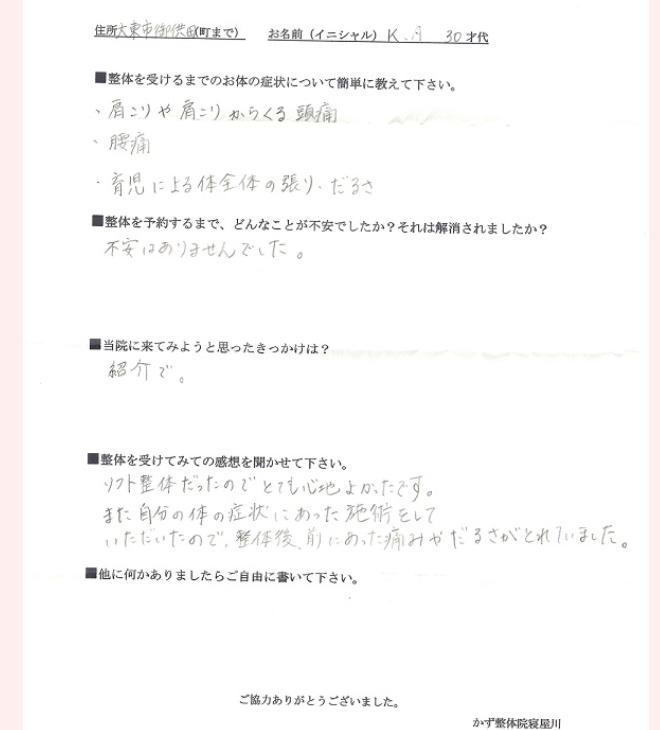 住所 大東市御供田(町まで) お名前（イニシャル） K.A 30才代
■整体を受けるまでのお体の症状について簡単に教えて下さい。
・肩こりや肩こりからくる頭痛
・腰痛
・育児による体全体の張り、だるさ
■整体を予約するまで、どんなことが不安でしたか？それは解消されましたか？
不安はありませんでした。
■当院に来てみようと思ったきっかけは？
紹介で。
■整体を受けてみての感想を聞かせて下さい。
ソフト整体だったのでとても心地よかったです。
また自分の体の症状にあった施術をして
いただいたので、整体後、前にあった痛みやだるさがとれていました。
■他に何かありましたらご自由に書いて下さい。
ご協力ありがとうございました。
かず整体院寝屋川